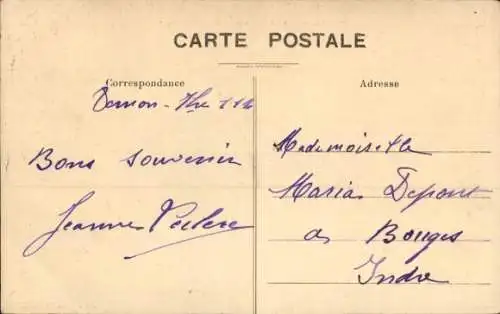 CARTE POSTALE
Correspondance
Bons souvenir
Jeanne
Adresse
Mademoiselle
Maria Depont
a Bouges
Indre